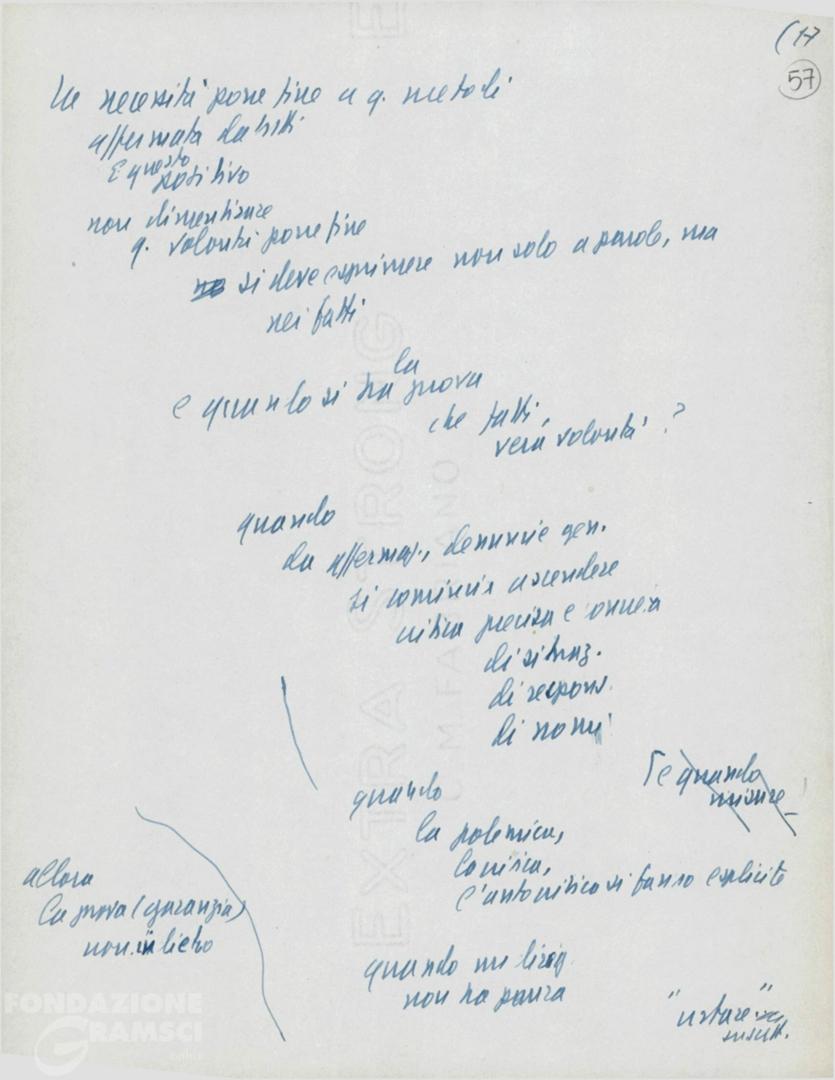 (17
57
La necessità porre fine a q. metodi
affermata da tutti
E questo
positivo
non dimenticare
q. volontà porre fine
si deve esprimere non solo a parole, ma
nei fatti
e quando si ha la prova
che tutti,
vera volontà?
quando
da affermaz., denuncie gen.
si comincia a scendere
critica precisa e
di situaz.
di respons.
di nomi
[e quando
misure
quando
la polemica,
la critica,
l'autocritica si fanno esplicite
allora
la prova (garanzia)
non indietro
quando un dirig.
non ha paura
"urtare"
EXTRA STRONG
C.M. FABRIANO
FONDAZIONE
GRAMSCI
onlus